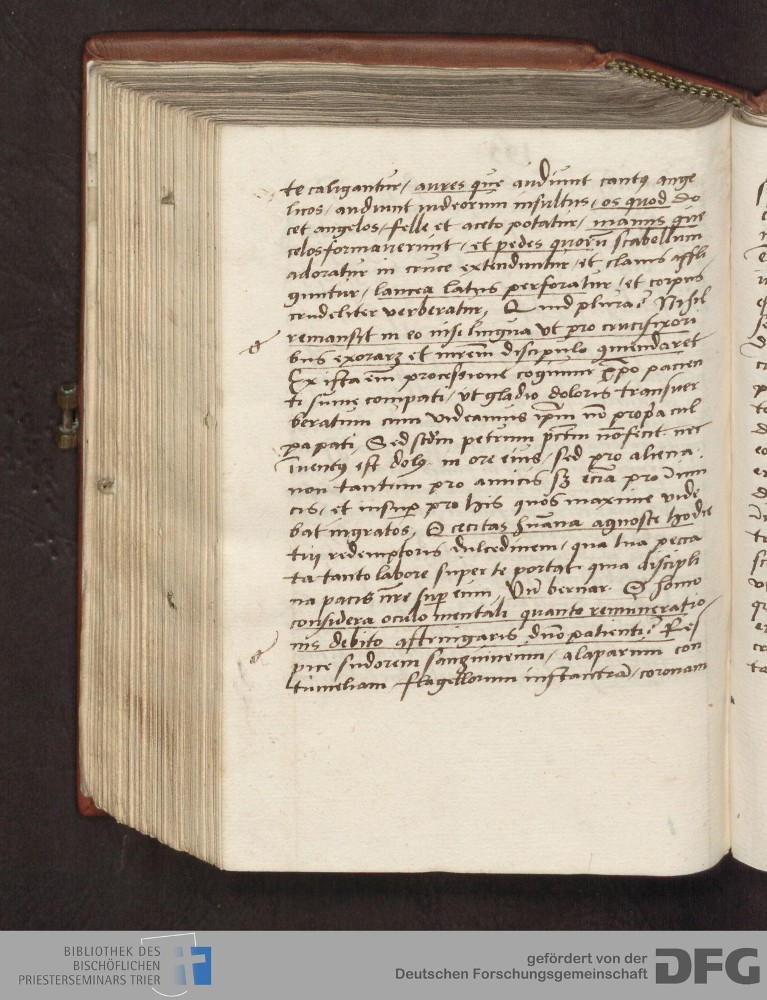 te caligantur / aures que audiunt cantus ange
licos / audiunt iudeorum insultus / os quod do
cet angelos / felle et aceto potatur / manus que
celos formauerunt / et pedes quorū scabellum
adoratur in cruce extenduntur / et clauis affli
guntur / lancea latus perforatur / et corpus
crudeliter verberatur, Quid plura? Nihil
remansit in eo nisi lingua vt pro crucifixori
bus exoraret et mrēm discipulo commendaret
Ex ista em̄ processione cogimur xp̄o pacien
ti summe compati / vt gladio doloris transuer
beratum cum videamus ip̄m nō propria cul
pa pati, Sed scd̄m petrum pctm̄ nō fecit nec
inuentus est dolus in ore eius / sed pro aliena.
non tantum pro amicis sꝫ etiā pro inimi
cis / et insuper pro his quos maxime vide
bat ingratos, O cecitas humana agnosce hodie
tui redemptoris dulcedinem / qua tua pecca
ta tanto labore super te portat quia discipli
na pacis nr̄e super eum, Vn̄ bernar. O homo
considera oculo mentali quanto remuneratio
nis debito astringaris dn̄o patienti? Res
pice sudorem sanguineum / alaparum con
tumeliam flagellorum instantiam / coronam
BIBLIOTHEK DES
BISCHÖFLICHEN
PRIESTERSEMINARS TRIER
gefördert von der
Deutschen Forschungsgemeinschaft
DFG